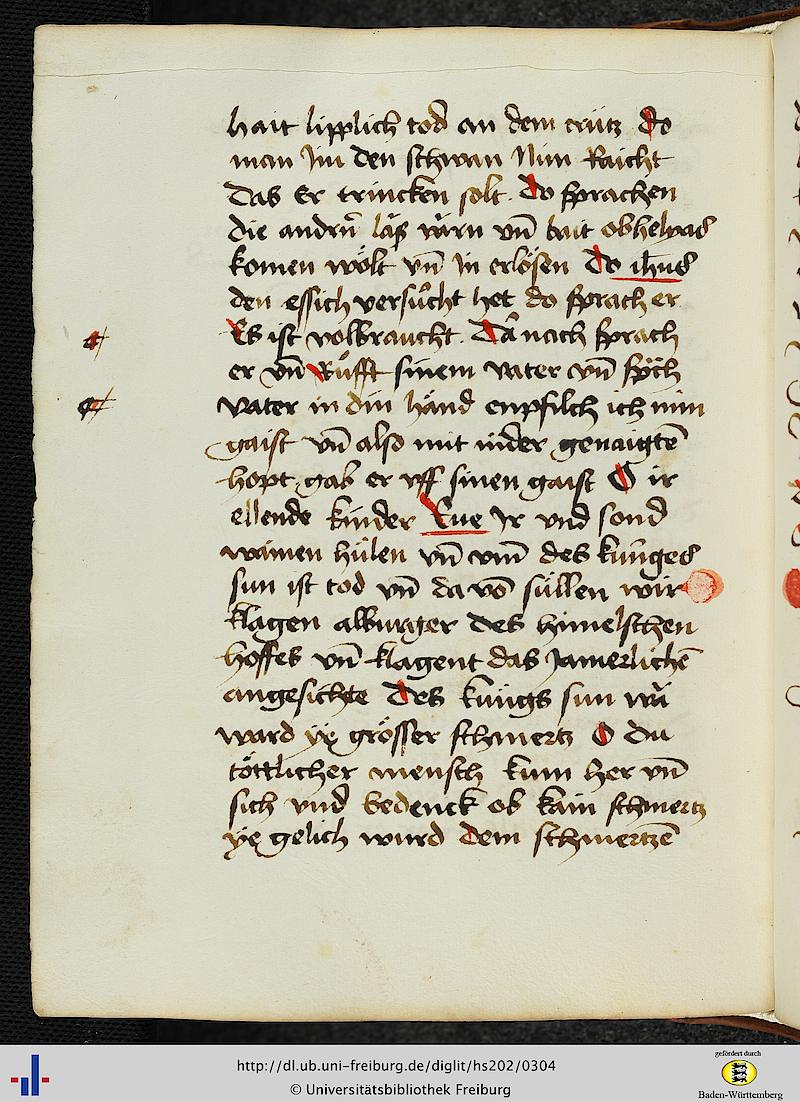 hait lipplich tod an dem crütz do
man Jm den schwam Nun Raicht
Das Er trincken solt. Do sprachen
die andrn̄ läs wärn vn̄ bait ob helyas
komen wölt vn̄ In erlösen Do ihus
den essich versuͦcht het do sprach er
Es ist volbraucht. Da nach sprach
er vn̄ Ruͦfft sinem vater vn̄ spͣch
Vater in din händ enpfilch ich min
gaist vn̄ also mit nider genaigtē
hopt gab er vff sinen gaist O ir
ellende kinder Eue Ir vnd sond
wainen hülen vn̄ vm̄ des künges
sun ist tod vn̄ da vō süllen wir
klagen all burger des himelschen
hoffes vn̄ klagent das Jamerlichē
angesichte des küngs sun wā
ward ye grösser schmertz O du
töttlicher mensch kum her vn̄
sich vnd bedenck ob kain schmertz
ye gelich wurd dem schmertzē
http://dl.ub.uni-freiburg.de/diglit/hs202/0304
© Universitätsbibliothek Freiburg
gefördert durch
Baden-Württemberg